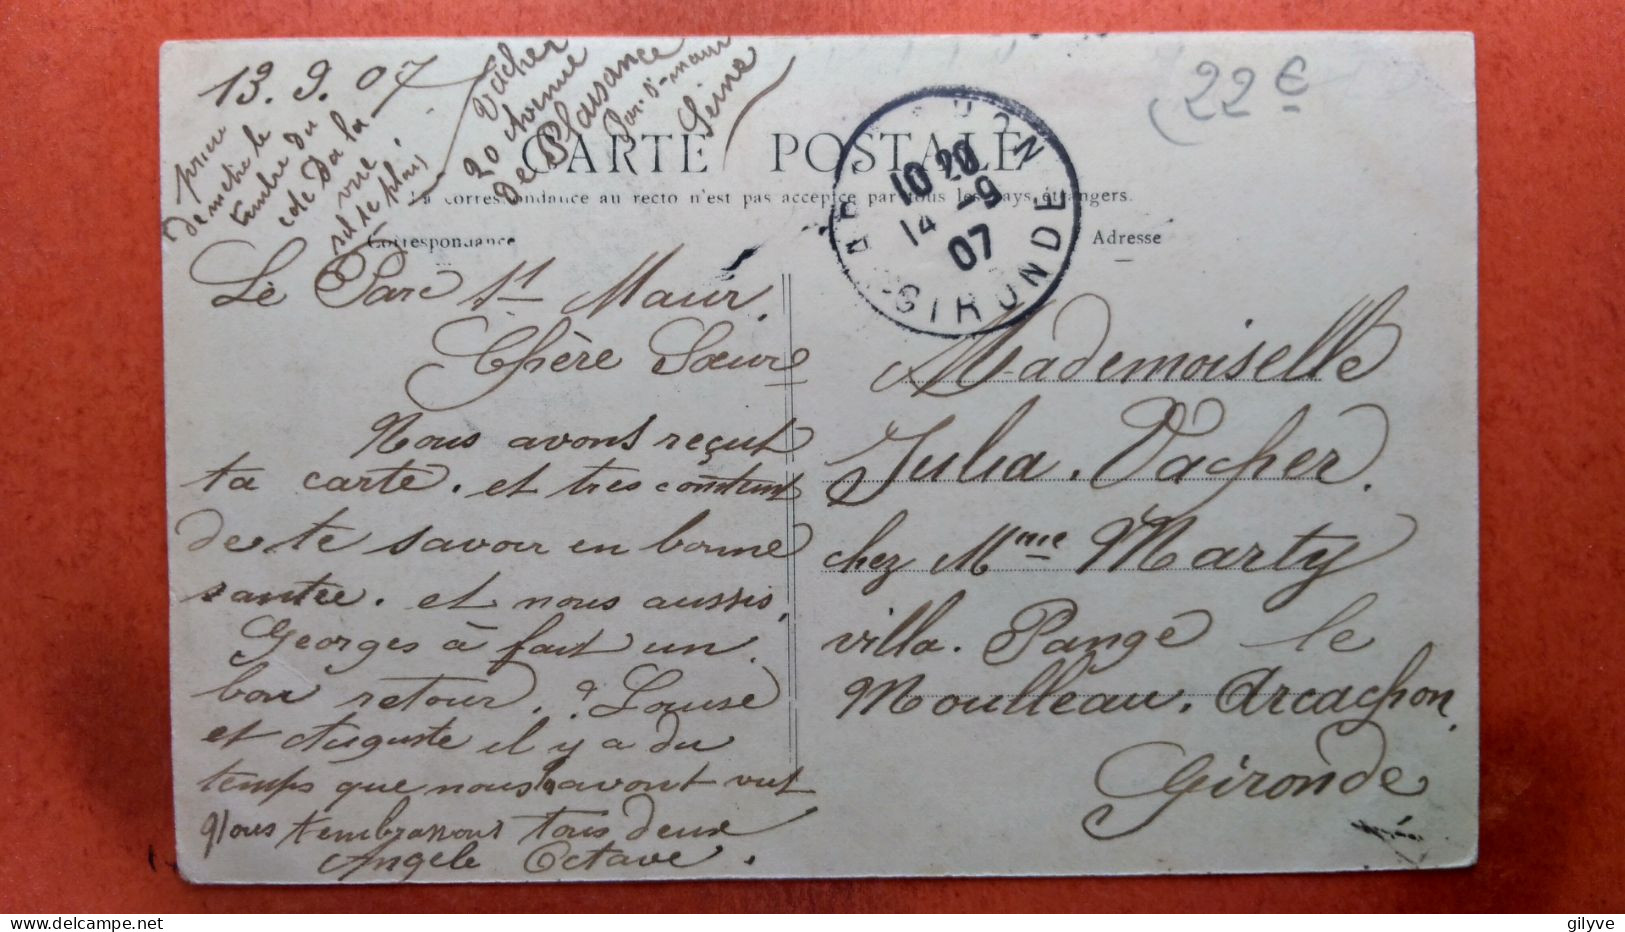 13.9.07
prière
de mettre le
timbre du
coté de la
vue
sil te plait
Vacher
20 Avenue
de Plaisance
Parc St-Maur
Seine
22€
CARTE POSTALE
La correspondance au recto n'est pas acceptée par tous les pays étrangers.
Correspondance
Adresse
ARCACHON
10 20
14 -9
07
GIRONDE
Le Parc St Maur.
Chère Sœur
Nous avons reçut
ta carte. et tres content
de te savoir en bonne
santée. et nous aussis.
Georges à fait un
bon retour. ? Louise
et Auguste il y a du
temps que nous avont vut
Nous tembrassons tous deux
Angele Octave.
Mademoiselle
Julia. Vacher.
chez Mme Marty
villa. Pange le
Moulleau. Arcachon.
Gironde
delcampe.net
gilyve